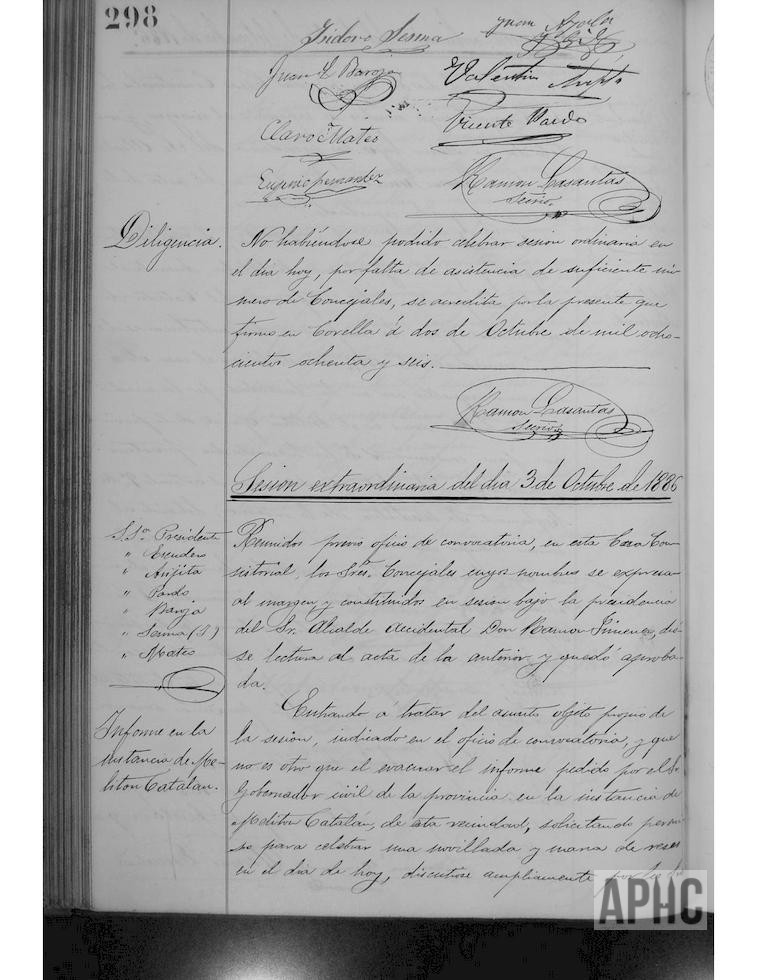 298
Isidoro Sesma
Juan
Juan L Baroja
Valentin
Claro Mateo
Vicente Pardo
Eugenio Fernandez
Ramon Lasantas
Secrio
Diligencia.
No habiéndose podido celebrar sesion ordinaria en
el dia hoy, por falta de asistencia de suficiente nú-
mero de Concejales, se acredita por la presente que
firmo en Corella á dos de Octubre de mil ocho-
cientos ochenta y seis.
Ramon Lasantas
Secrio
Sesion extraordinaria del dia 3 de Octubre de 1886
S.Sa Presidente
" Escudero
" Arijita
" Pardo
" Baroja
" Sesma (I)
" Mateo
Reunidos previo oficio de convocatoria, en esta Casa Con-
sistorial, los Sres. Concejales cuyos nombres se expresan
al margen, y constituidos en sesion bajo la presidencia
del Sr. Alcalde Accidental Don Ramon Gimenez, dió-
se lectura al acta de la anterior, y quedó aproba-
da.
Informe en la
instancia de Me-
liton Catalan.
Entrando á tratar del asunto objeto propio de
la sesion, indicado en el oficio de convocatoria, y que
no es otro que el evacuar el informe pedido por el Sr
Gobernador civil de la provincia en la instancia de
Meliton Catalán, de esta vecindad, solicitando permi-
so para celebrar una novillada y mana de reses
en el dia de hoy, discutióse ampliamente
APHC